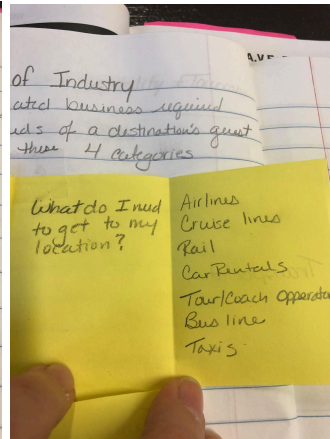 A.V.E
of Industry
ated business required
eds of a destination's guest
these 4 categories
What do I need
to get to my
location?
Airlines
Cruise lines
Rail
Car Rentals
Tour/Coach Opperator
Bus line
Taxis